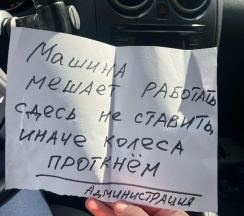 Машина
мешает работать
здесь не ставить,
иначе колеса
проткнём
Администрация